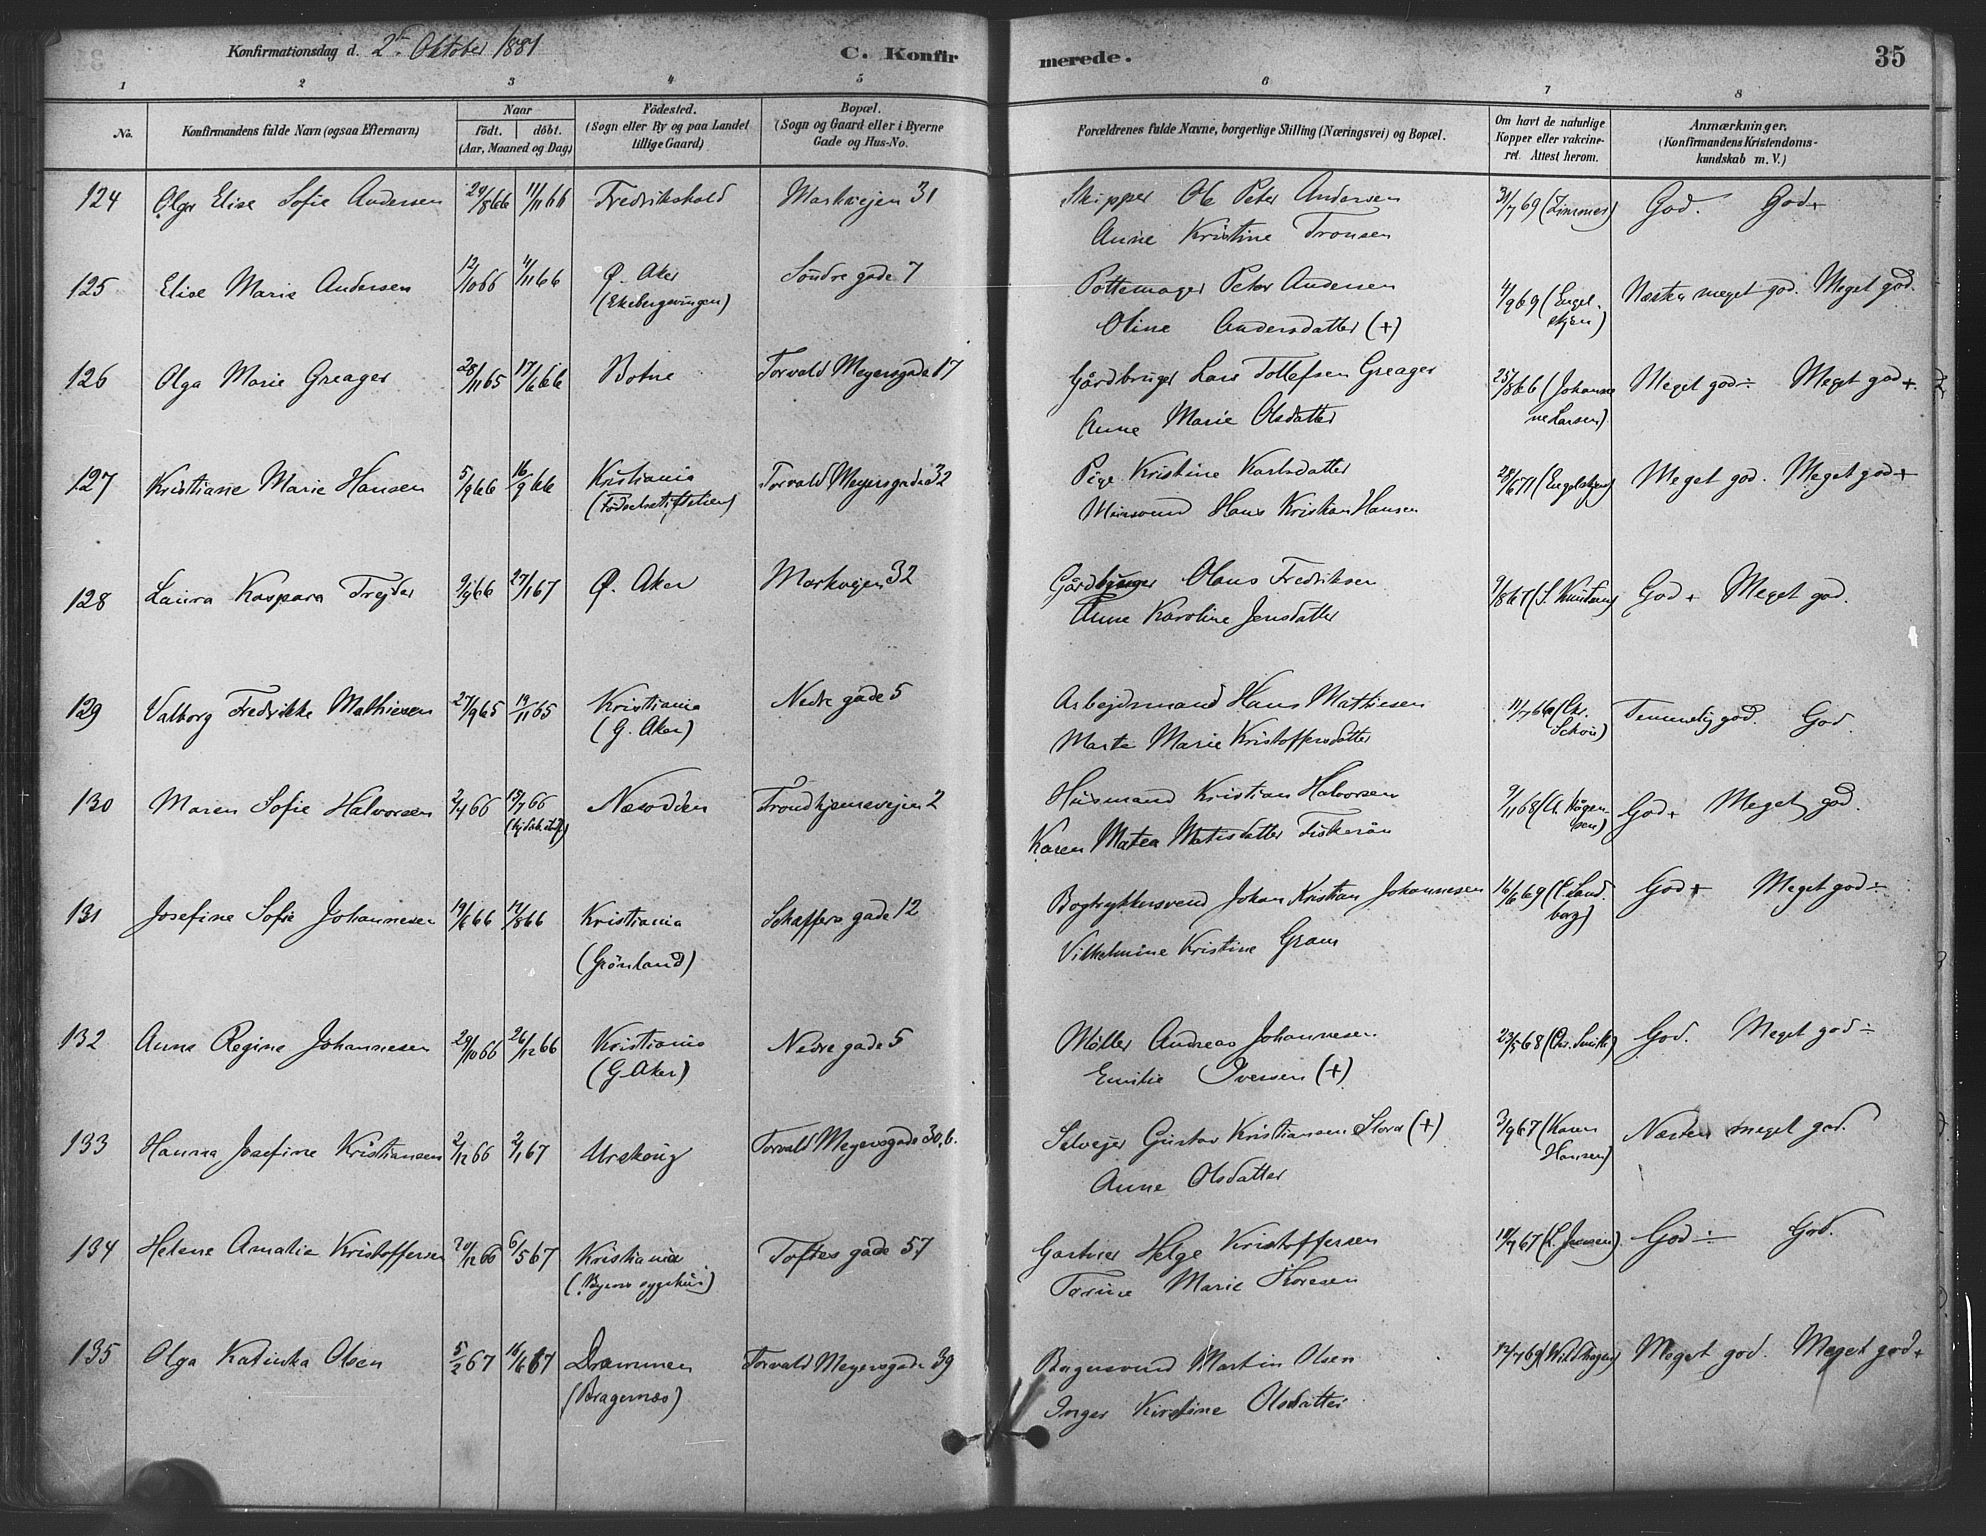 Konfirmationsdag d. 2den Oktober 1881
C. Konfirmerede.
35
1 2 3 4 5 6 7 8
No.
Konfirmandens fulde Navn (ogsaa Efternavn)
Naar
födt. döbt.
(Aar, Maaned og Dag)
Födested.
(Sogn eller By og paa Landet
tillige Gaard)
Bopæl.
(Sogn og Gaard eller i Byerne
Gade og Hus-No.
Forældrenes fulde Navne, borgerlige Stilling (Næringsvei) og Bopæl.
Om havt de naturlige
Kopper eller vakcine-
ret. Attest herom.
Anmærkninger.
(Konfirmandens Kristendoms-
kundskab m. V.)
124 Olga Elise Sofie Andersen 29/8 66 11/11 66 Fredrikshald Markvejen 31 Skipper Ole Peter Andersen 31/7 69 (Zimmer) God. God+
Anne Kristine Tronsen
125 Elise Marie Andersen 12/10 66 4/11 66 Ø. Aker Søndre gade 7 Pottemager Peter Andersen 4/9 69 (Engel- Næsten meget god. Meget god.
(Ekebergsvingen) Oline Andersdatter (+) skjøn)
126 Olga Marie Greager 28/11 65 17/6 66 Botne Torvald Meyersgade 17 Gårdbruger Lars Tollefsen Greager 25/8 66 (Johanne Meget god÷ Meget god+.
Anne Marie Olsdatter ne Larsen)
127 Kristiane Marie Hansen 5/9 66 16/9 66 Kristiania Torvald Meyersgade 32 Pige Kristine Karlsdatter 28/6 71 (Engelskjøn) Meget god. Meget god+
(Fødselsstiftelsen) Mursvend Hans Kristian Hansen
128 Laura Kaspara Trejder 9/9 66 27/1 67 Ø. Aker Markvejen 32 Gårdbruger Olaus Fredriksen 9/8 67 (S. Knutsen) God+ Meget god.
Anne Karoline Jensdatter
129 Valborg Fredrikke Mathiesen 27/9 65 19/11 65 Kristiania Nedre gade 5 Arbejdsmand Hans Mathiesen 11/7 66 (Chr. Temmelig god. God.
(G. Aker) Marte Marie Kristoffersdatter Schou)
130 Maren Sofie Halvorsen 2/4 66 15/7 66 Næsodden Trondhjemsvejen 2 Husmand Kristian Halvorsen 9/11 68 (A. Mågen- God+ Meget god.
(hjdøbt) Karen Matea Matisdatter Fiskerøn sen)
131 Josefine Sofie Johannesen 19/6 66 12/8 66 Kristiania Schaffers gade 12 Bogtrykkersvend Johan Kristian Johannesen 16/6 69 (C. Sand- God+ Meget god÷
(Grønland) Vilhelmine Kristine Gram berg)
132 Anna Regine Johannesen 29/10 66 26/12 66 Kristiania Nedre gade 5 Møller Andreas Johannesen 23/5 68 (Chr. Smith) God. Meget god÷
(G. Aker) Emilie Iversen (+)
133 Hanna Josefine Kristiansen 2/12 66 2/1 67 Urskoug Torvald Meyersgade 30, b. Selvejer Gustav Kristiansen Flora (+) 3/9 67 (Karen Næsten meget god.
Anne Olsdatter Hansen)
134 Helene Amalie Kristoffersen 29/12 66 6/5 67 Kristiania Toftes gade 57 Gartner Helge Kristoffersen 19/7 67 (L. Jensen) God÷ God.
(Byens sygehus) Torine Marie Thoresen
135 Olga Katinka Olsen 5/2 67 16/6 67 Drammen Torvald Meyersgade 39 Bagersvend Martin Olsen 12/7 69 (Wildhagen) Meget god. Meget god+
(Bragernæs) Inger Kirstine Olsdatter